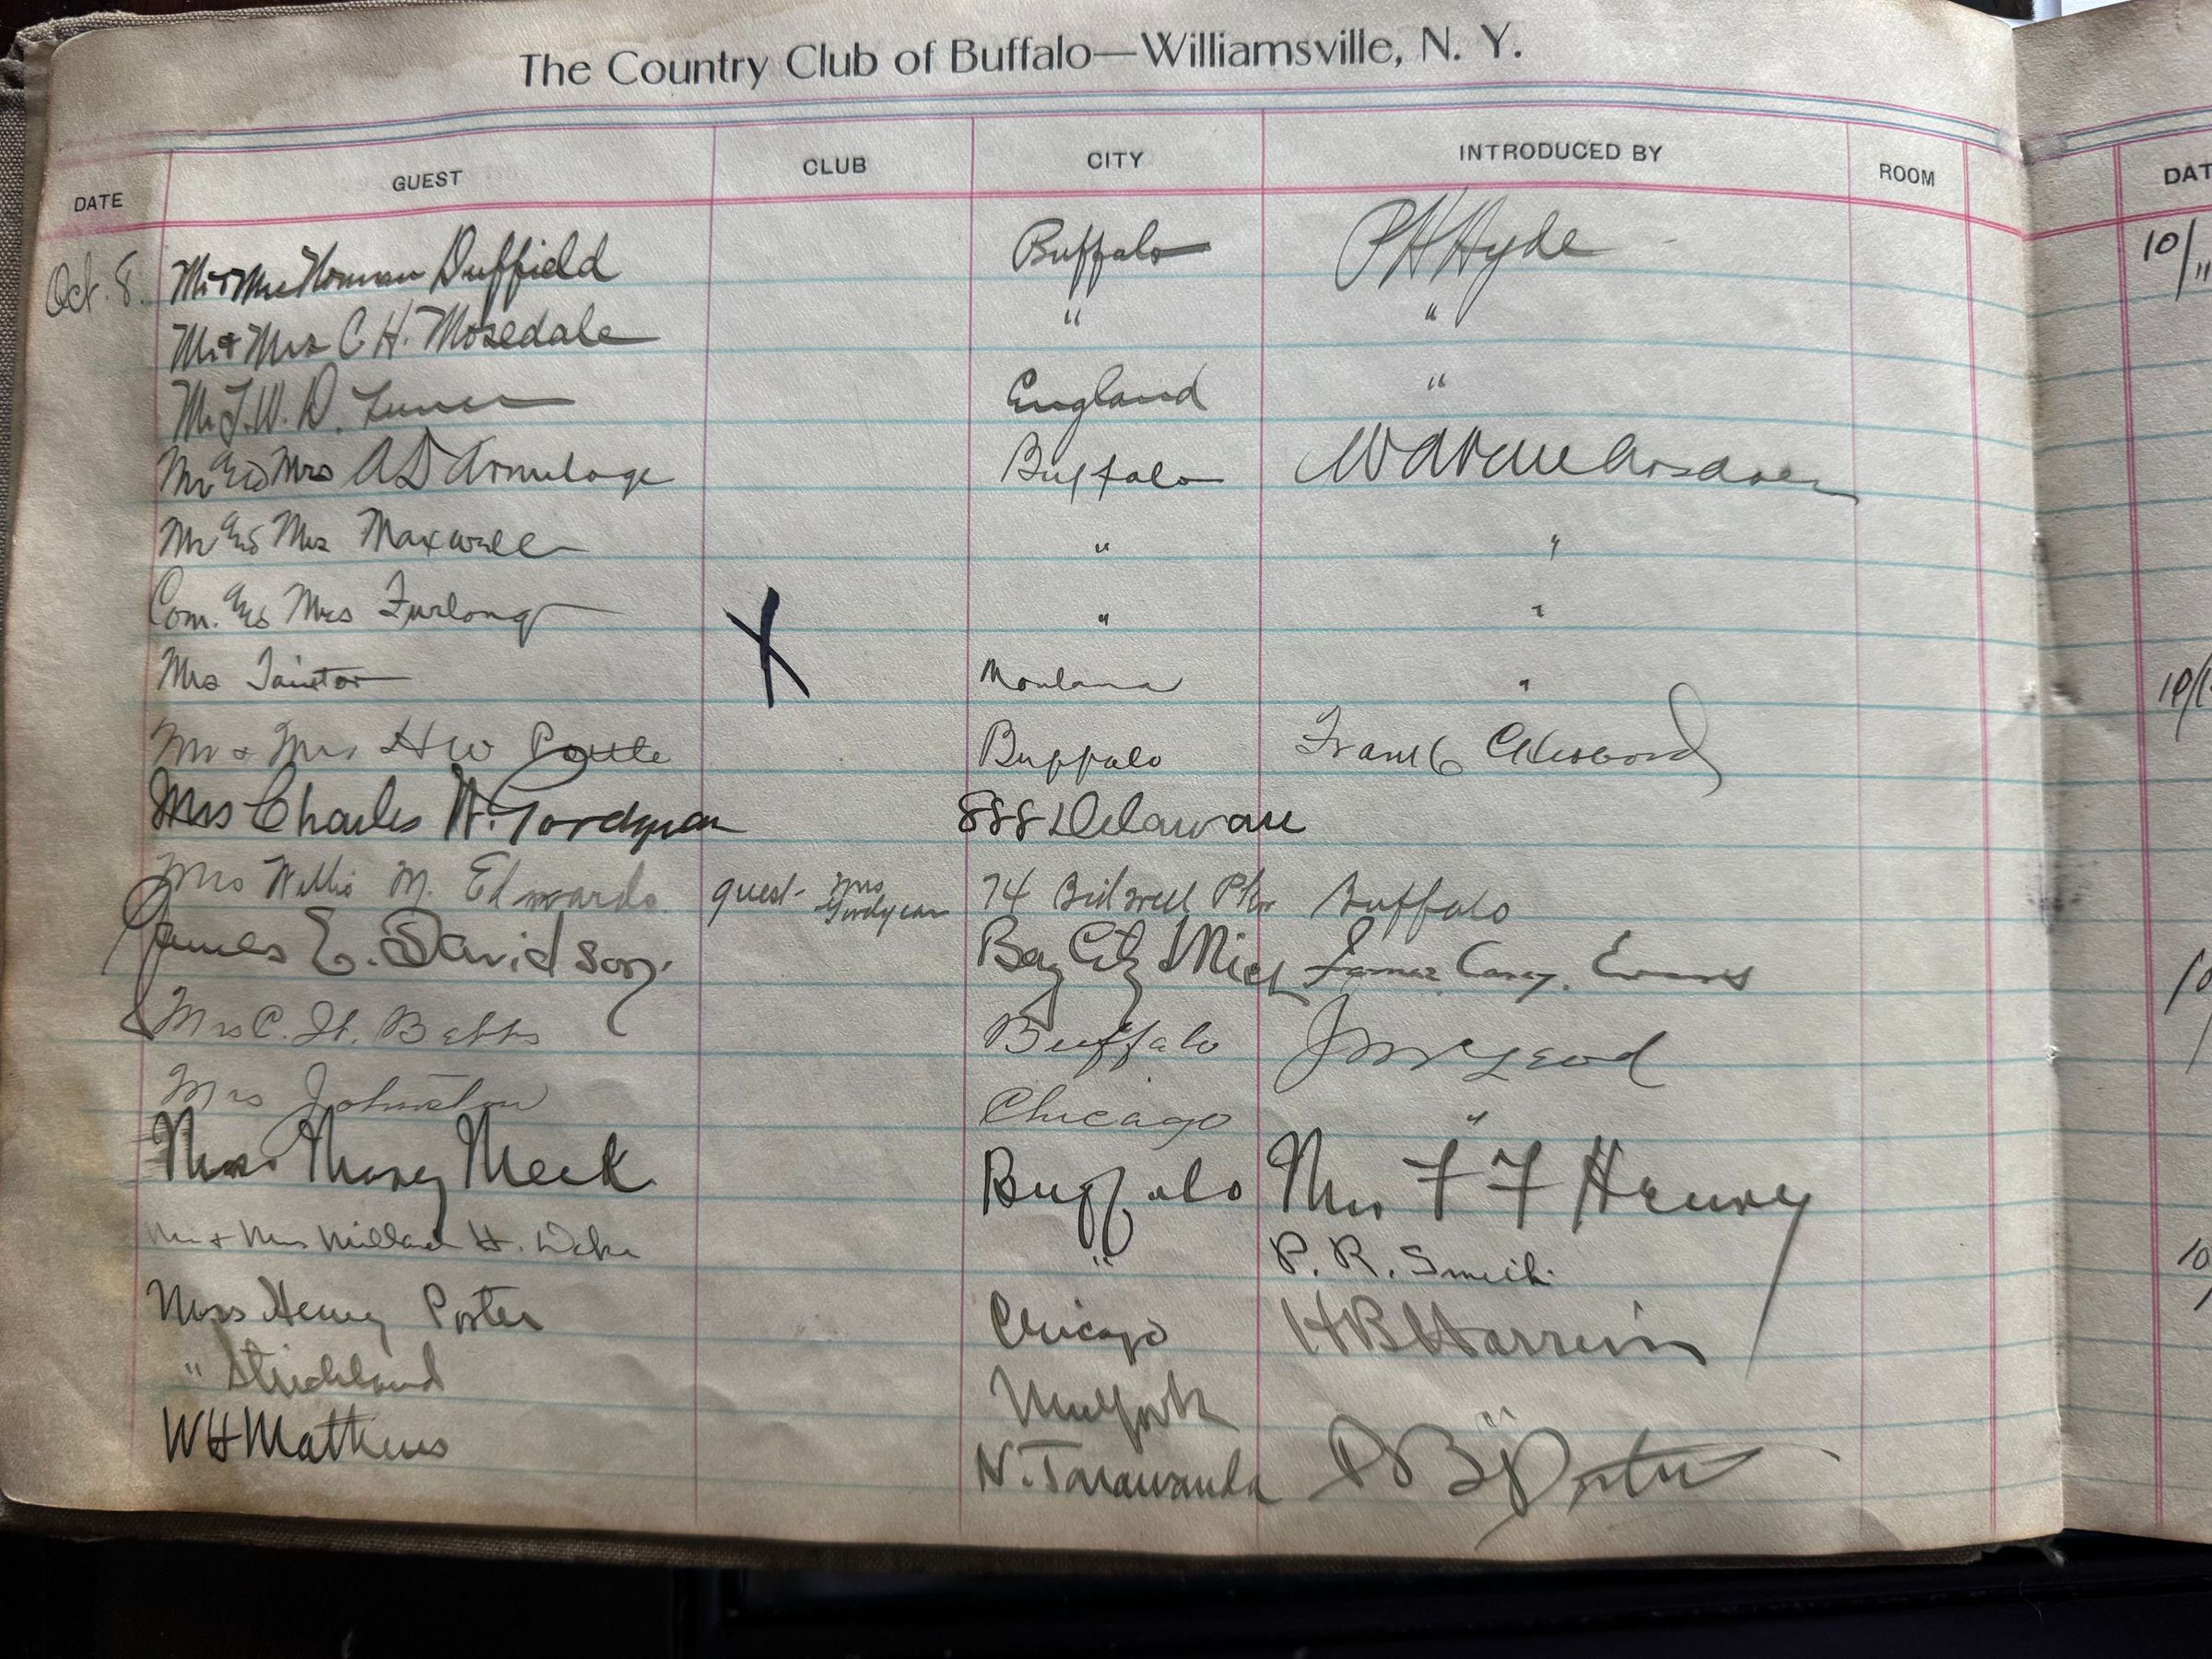 The Country Club of Buffalo—Williamsville, N. Y.
DATE GUEST CLUB CITY INTRODUCED BY ROOM
Oct. 8. Mr & Mrs Norman Duffield Buffalo P H Hyde
Mr & Mrs C. H. Mosedale " "
Mr W. D. England "
Mr and Mrs A D Armitage Buffalo
Mr and Mrs Maxwell " "
Com. and Mrs Furlong " "
Mrs Taintor X Montana "
Mr & Mrs H W Buffalo Frank
Mrs Charles W. Goodyear 888 Delaware
Mrs Willis M. Edwards guest- Mrs Goodyear 74 Bidwell Pkw Buffalo
James E. Davidson. Bay City Mich James Carey Evans
Mrs C. H. Betts Buffalo J McLeod
Mrs Johnston Chicago "
Mary Meek Buffalo Mrs F F Henry
Mr & Mrs Millard H. " P. R. Smith
Miss Henry Porter Chicago H B
" Strickland New York "
W H Mathews N. Tonawanda P B Porter
DAT
10/11
10/1
10
10